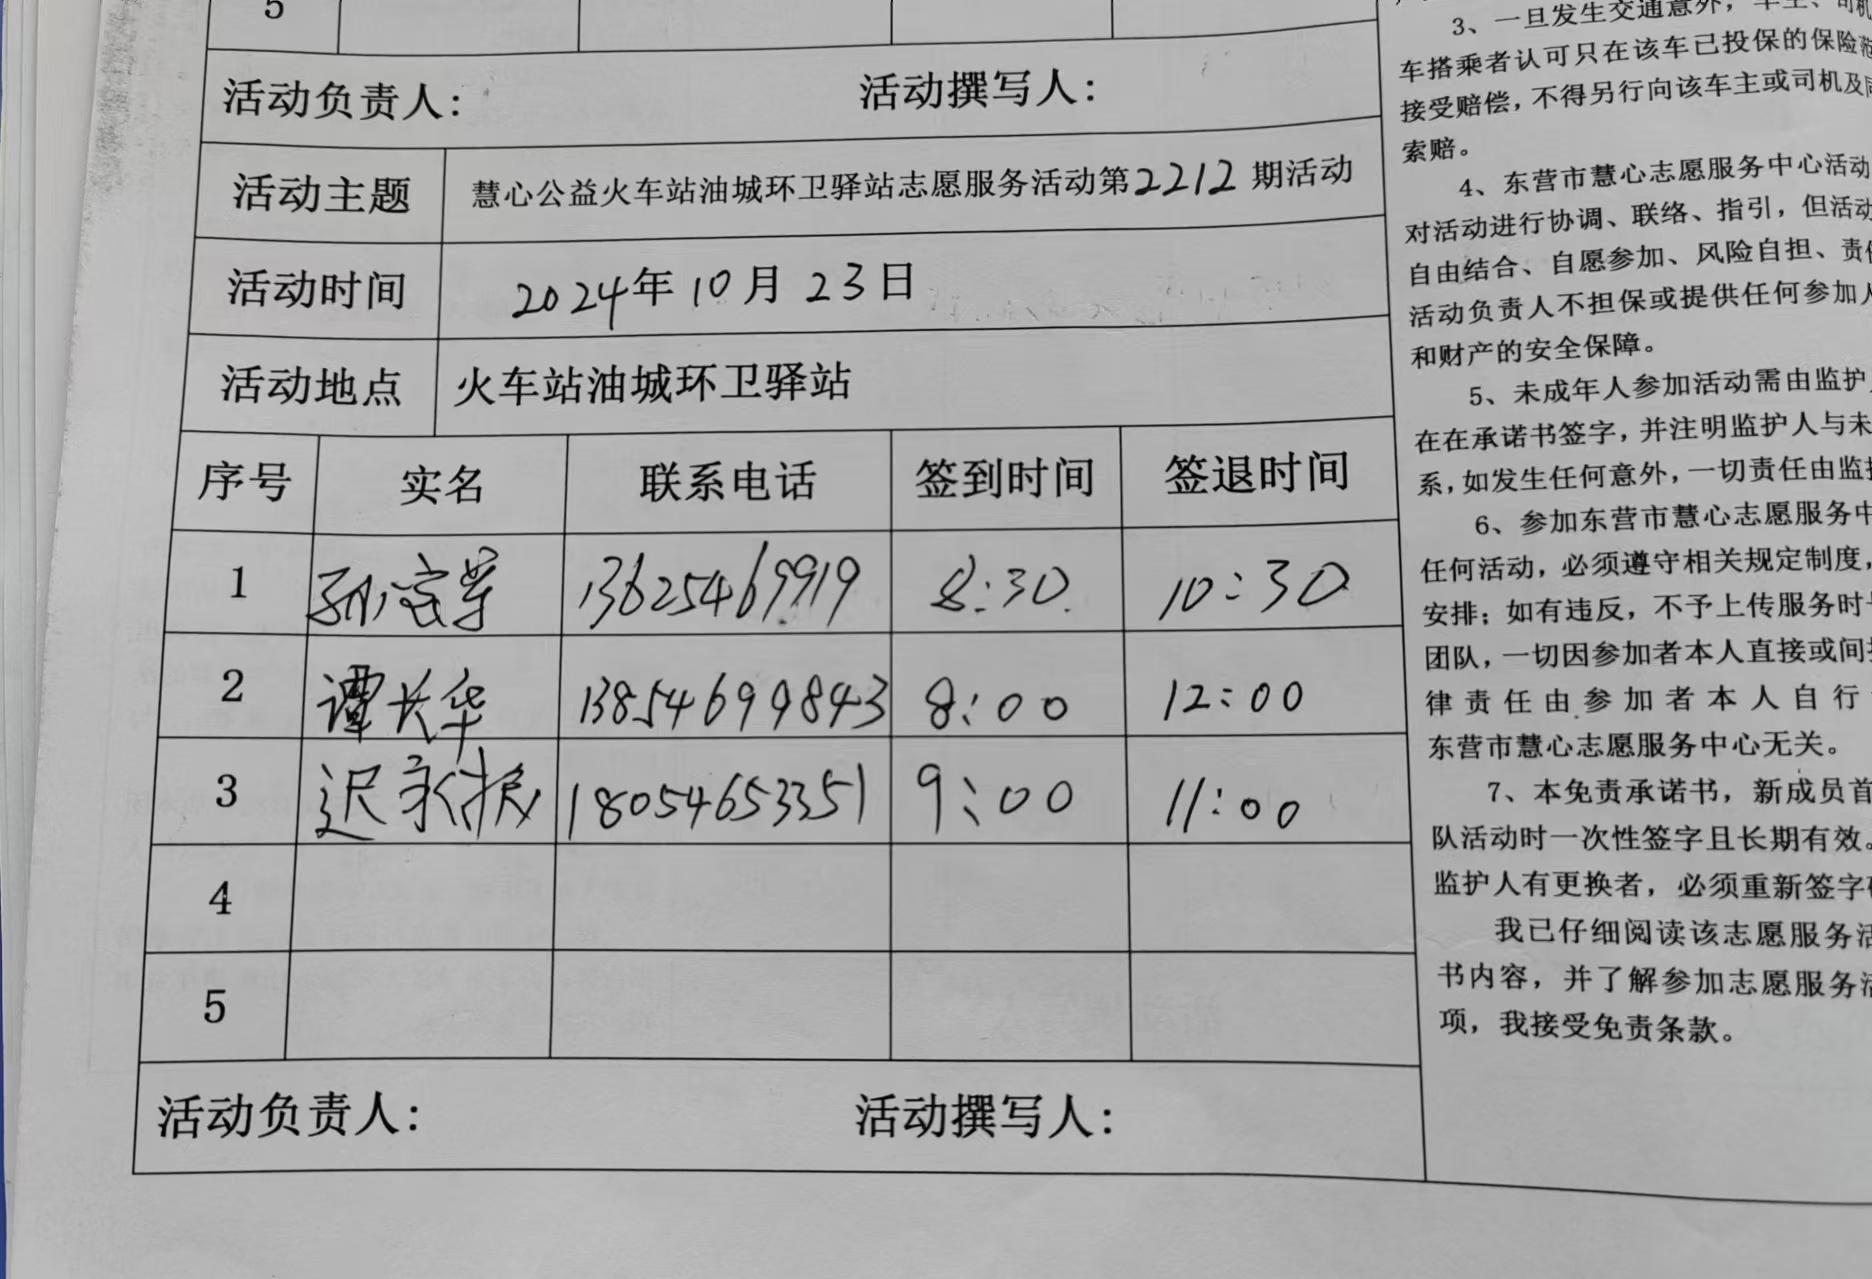 5
活动负责人: 活动撰写人:
活动主题 慧心公益火车站油城环卫驿站志愿服务活动第2212期活动
活动时间 2024年10月23日
活动地点 火车站油城环卫驿站
序号 实名 联系电话 签到时间 签退时间
1 13625469919 8:30 10:30
2 谭长华 13854699843 8:00 12:00
3 迟 18054653351 9:00 11:00
4
5
活动负责人: 活动撰写人:
3、一旦发生交通意外，车主、司机
车搭乘者认可只在该车已投保的保险
接受赔偿，不得另行向该车主或司机及
索赔。
4、东营市慧心志愿服务中心活动
对活动进行协调、联络、指引，但活动
自由结合、自愿参加、风险自担、责
活动负责人不担保或提供任何参加人
和财产的安全保障。
5、未成年人参加活动需由监护
在在承诺书签字，并注明监护人与未
系，如发生任何意外，一切责任由监
6、参加东营市慧心志愿服务中
任何活动，必须遵守相关规定制度，
安排；如有违反，不予上传服务时
团队，一切因参加者本人直接或间
律责任由参加者本人自行
东营市慧心志愿服务中心无关。
7、本免责承诺书，新成员首
队活动时一次性签字且长期有效。
监护人有更换者，必须重新签字
我已仔细阅读该志愿服务活
书内容，并了解参加志愿服务活
项，我接受免责条款。